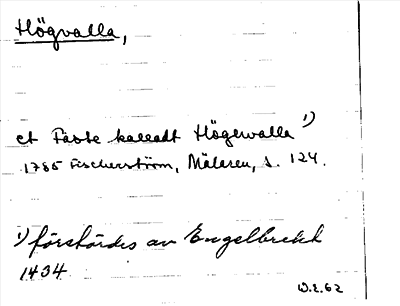 Högvalla,
et Fäste kalladt Högewalla 1)
1785 Fischerström, Mälaren, s. 124.
1) förstördes av Engelbrekt
1434
W.E. 62